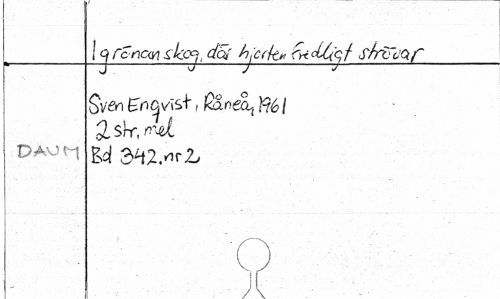 I grönan skog, där hjorten fredligt strövar
Sven Enqvist, Råneå, 1961
2 str, mel
DAUM Bd 342, nr 2